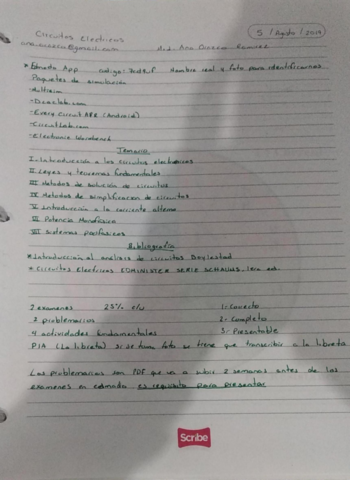 Circuitos Electricos
5 / Agosto / 2019
@gmail.com Ana Ramirez
* Edmodo App codigo: Nombre real y foto para identificarnos.
Paquetes de simulación
- Multisim
- Docslab.com
- Every Circuit APK (Android)
- Circuitlab.com
- Electronic Workbench
Temario
I. Introducción a los circuitos electricos
II Leyes y teoremas fundamentales
III Metodos de solución de circuitos
IV Metodos de simplificacion de circuitos
V Introducción a la corriente alterna
VI Potencia Monofasica
VII Sistemas polifasicos
Bibliografia
* Introduccion al analisis de circuitos Boylestad
* Circuitos Electricos EDMINISTER SERIE SCHAUMS
2 examenes 25% c/u 1- Correcto
2 problemarios 2- Completo
4 actividades fundamentales 3- Presentable
PIA (La libreta) Si se toma foto se tiene que transcribir a la libreta
Los problemarios son PDF que va a subir 2 semanas antes de los
examenes en edmodo es requisito para presentar
Scribe